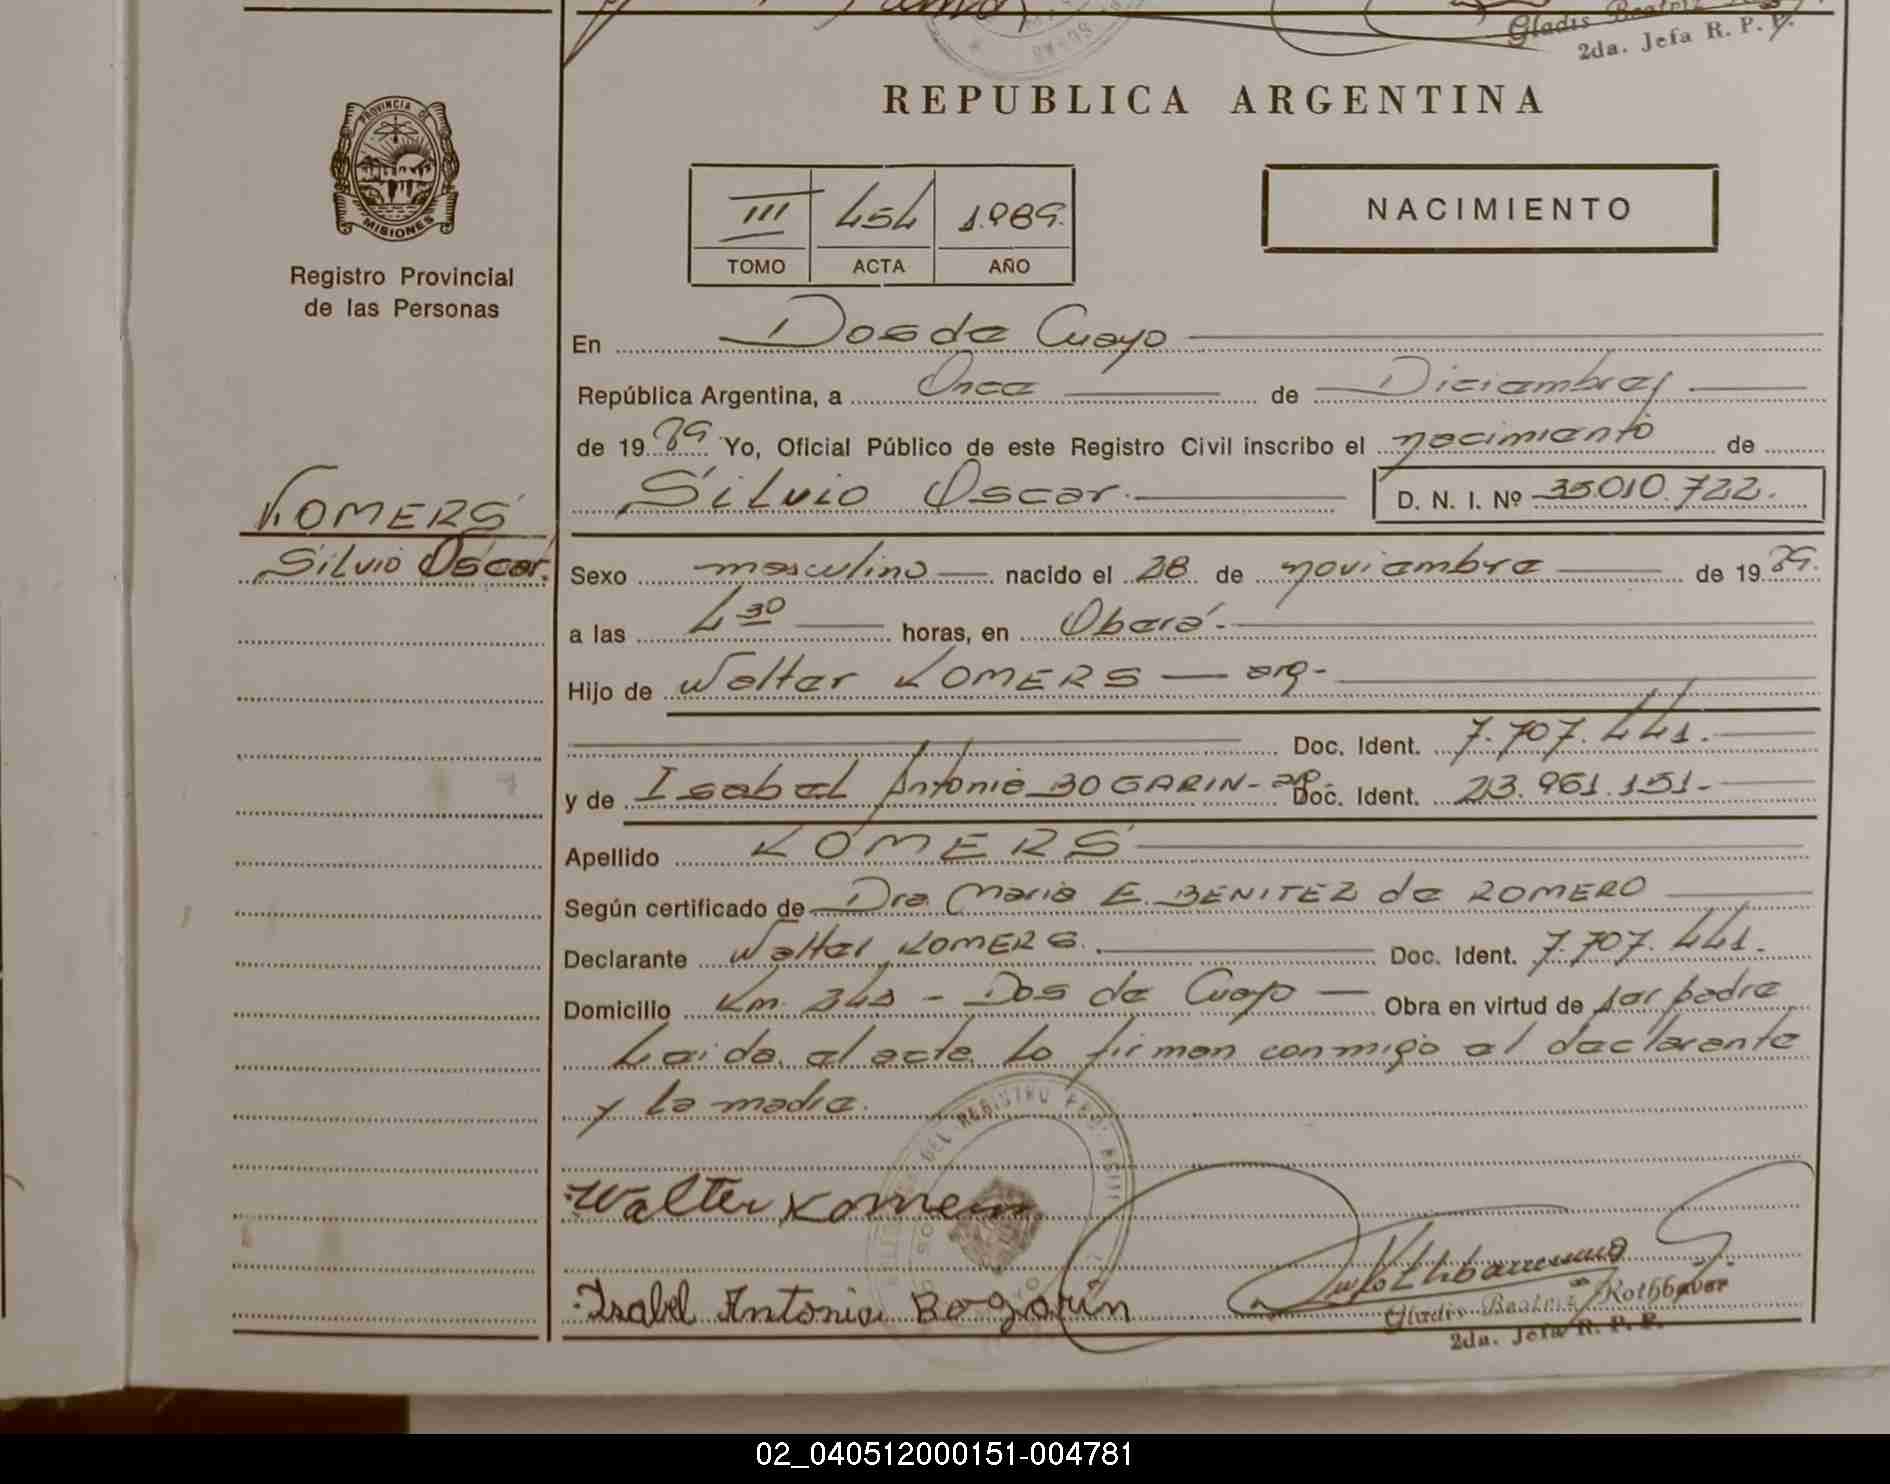 Gladis Beatriz
2da. Jefa R. P. P.
REPUBLICA ARGENTINA
PROVINCIA DE
MISIONES
Registro Provincial
de las Personas
III 454 1.989.
TOMO ACTA AÑO
NACIMIENTO
En Dos de Cuayo
República Argentina, a Once de Diciembre
de 19 89 Yo, Oficial Público de este Registro Civil inscribo el nacimiento de
Silvio Oscar. D. N. I. Nº 35.010.722.
KOMERS
Silvio Oscar.
Sexo masculino nacido el 28 de noviembre de 19 89.
a las 4 30 horas, en Oberá.
Hijo de Walter KOMERS - arg-
Doc. Ident. 7.707.441.
y de Isabel Antonia BOGARIN - arg. Doc. Ident. 23.961.151-
Apellido KOMERS
Según certificado de Dra Maria E. BENITEZ de ROMERO
Declarante Walter KOMERS. Doc. Ident. 7.707.441.
Domicilio Km. 343 - Dos de Cuayo Obra en virtud de ser padre
Leida el acta lo firman conmigo el declarante
y la madre.
Walter Komers
Isabel Antonia Bogarin
Gladis Beatriz Rothbauer
2da. Jefa R. P. P.
02_040512000151-004781